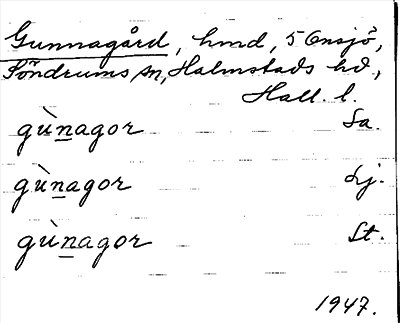 Gunnagård, hmd, 5 Onsjö,
Söndrums sn, Halmstads hd,
Hall. l.
gùnagor Sa.
gùnagor Lj.
gùnagor St.
1947.